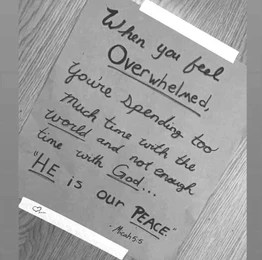 When you feel
Overwhelmed,
You're spending too
much time with the
world and not enough
time with God...
"HE is our PEACE."
- Micah 5:5